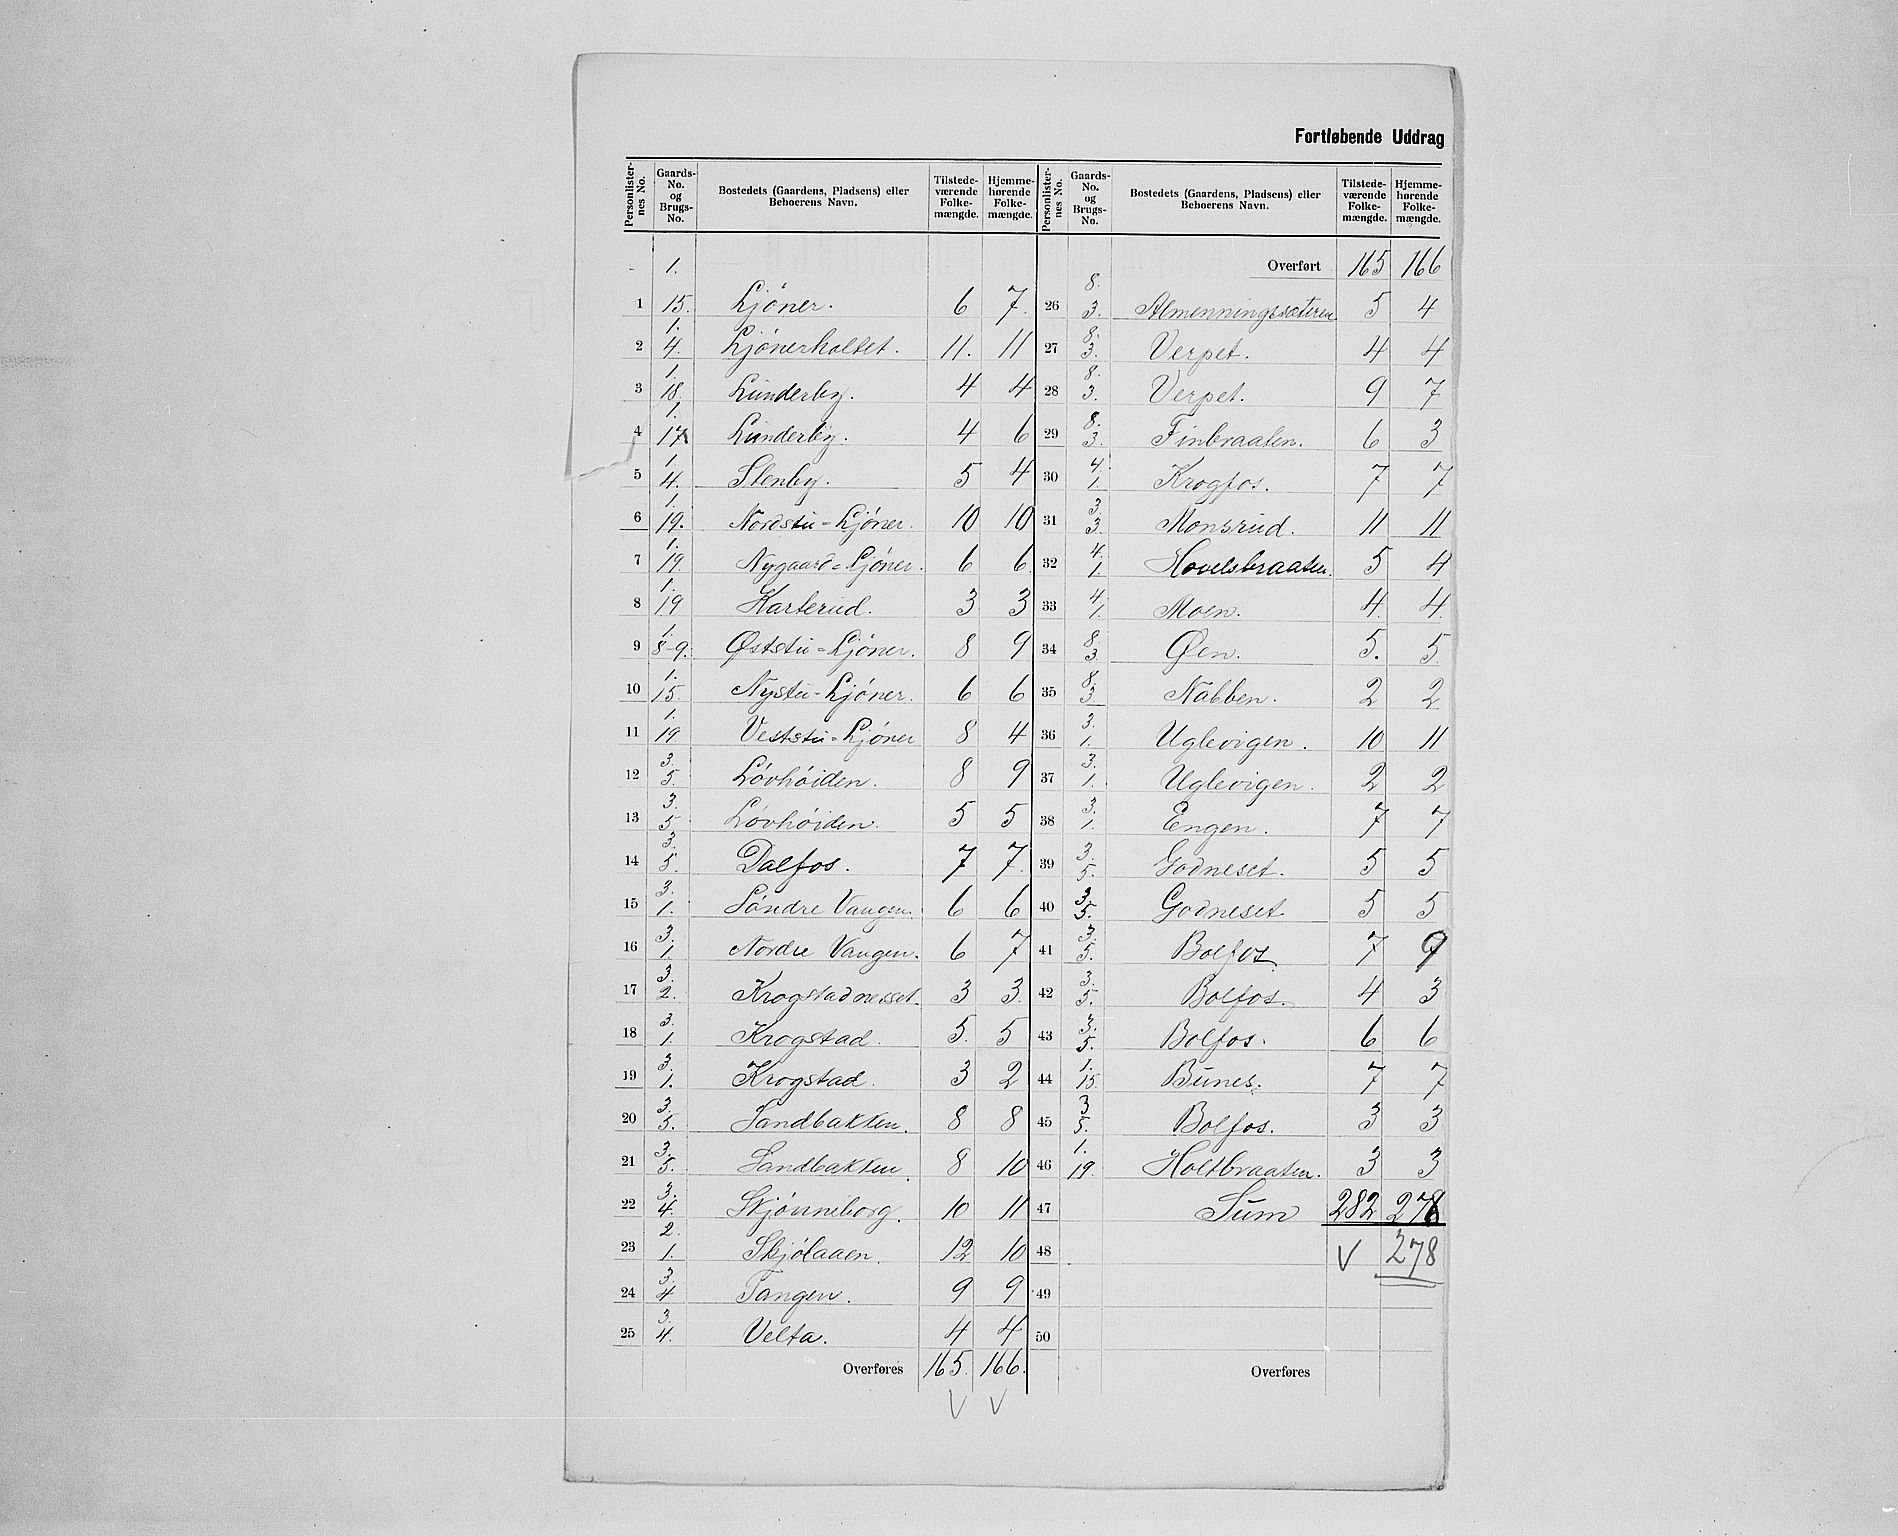 Fortløbende Uddrag
Personlister-nes No. | Gaards-No. og Brugs-No. | Bostedets (Gaardens, Pladsens) eller Beboerens Navn. | Tilstede-værende Folke-mængde. | Hjemme-hørende Folke-mængde.
1 | 1. 15. | Ljöner. | 6 | 7.
2 | 1. 4. | Ljönerholtet. | 11. | 11
3 | 1. 18. | Lunderby. | 4 | 4
4 | 1. 17 | Lunderby. | 4 | 6
5 | 1. 4. | Stenby. | 5 | 4
6 | 1. 19. | Nordstu-Ljöner. | 10 | 10
7 | 1. 19 | Nygaard-Ljöner. | 6 | 6
8 | 1. 19 | Karterud. | 3 | 3
9 | 1. 8-9. | Øststu-Ljöner. | 8 | 9
10 | 1. 15 | Nystu-Ljöner. | 6 | 6
11 | 1. 19 | Veststu-Ljöner | 8 | 4
12 | 3. 5. | Lövhöiden. | 8 | 9
13 | 3. 5 | Lövhöiden. | 5 | 5
14 | 3. 5. | Dalfos. | 7 | 7.
15 | 3. 1. | Söndre Vangen. | 6 | 6
16 | 3. 1 | Nordre Vangen. | 6 | 7
17 | 3. 2. | Krogstadnesset. | 3 | 3.
18 | 3. 1. | Krogstad. | 5. | 5
19 | 3. 1. | Krogstad. | 3 | 2
20 | 3. 5. | Sandbakken. | 8 | 8
21 | 3. 5. | Sandbakken. | 8 | 10
22 | 3. 4. | Skjönneborg. | 10 | 11
23 | 2. 1. | Skjölaaen. | 12 | 10
24 | 3. 4 | Tangen. | 9 | 9
25 | 3. 4. | Velta. | 4 | 4
Overføres | 165. | 166.
V V
Personlister-nes No. | Gaards-No. og Brugs-No. | Bostedets (Gaardens, Pladsens) eller Beboerens Navn. | Tilstede-værende Folke-mængde. | Hjemme-hørende Folke-mængde.
Overført | 165 | 166
26 | 8. 3. | Almenningssæteren | 5 | 4
27 | 8. 3. | Verpet. | 4 | 4
28 | 8. 3. | Verpet. | 9 | 7
29 | 8. 3. | Finbraaten. | 6 | 3
30 | 4. 1. | Krogfos. | 7 | 7
31 | 3. 3. | Monsrud. | 11 | 11
32 | 4. 1. | Hovelsbraaten. | 5 | 4
33 | 4. 1. | Moen. | 4. | 4.
34 | 8. 3 | Øen. | 5. | 5
35 | 8. 3. | Nabben. | 2 | 2
36 | 3. 1. | Uglevigen. | 10 | 11
37 | 3. 1. | Uglevigen. | 2 | 2
38 | 3. 1. | Engen. | 7 | 7
39 | 3. 5. | Godneset. | 5 | 5
40 | 3. 5. | Godneset | 5 | 5
41 | 3. 5. | Bolfos | 7 | 9
42 | 3. 5. | Bolfos. | 4 | 3
43 | 3. 5. | Bolfos. | 6 | 6
44 | 1. 15. | Bunes. | 7 | 7
45 | 3 5. | Bolfos. | 3 | 3
46 | 1. 19. | Holtbraaten. | 3 | 3
47 | Sum | 282 | 278
48 | V | 278
49
50
Overføres